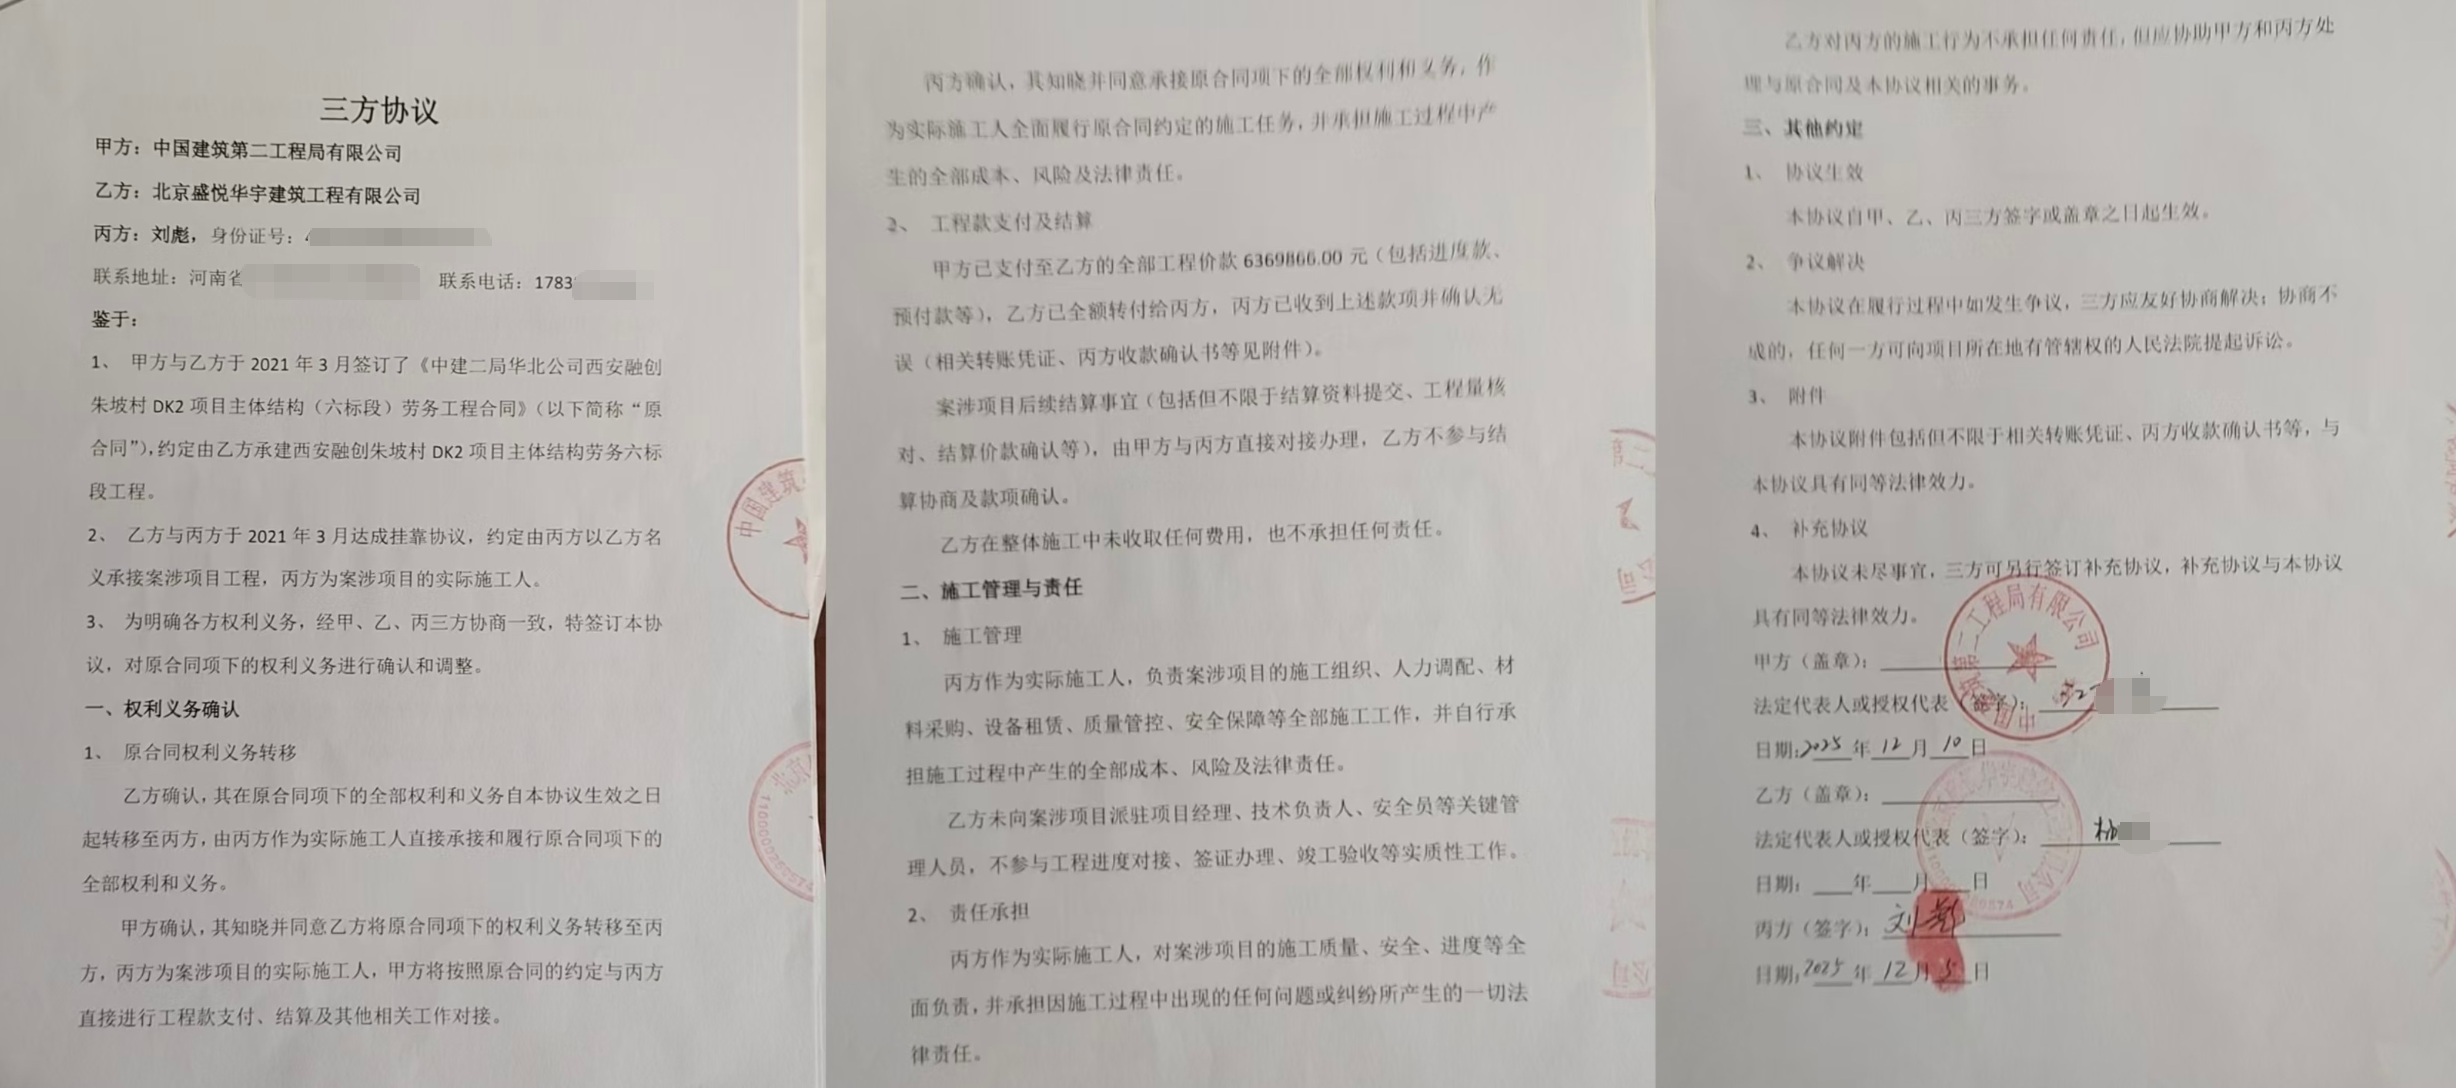 三方协议
甲方：中国建筑第二工程局有限公司
乙方：北京盛悦华宇建筑工程有限公司
丙方：刘彪，身份证号：
联系地址：河南省 联系电话：1783
鉴于：
1、 甲方与乙方于 2021 年 3 月签订了《中建二局华北公司西安融创
朱坡村 DK2 项目主体结构（六标段）劳务工程合同》（以下简称“原
合同”），约定由乙方承建西安融创朱坡村 DK2 项目主体结构劳务六标
段工程。
2、 乙方与丙方于 2021 年 3 月达成挂靠协议，约定由丙方以乙方名
义承接案涉项目工程，丙方为案涉项目的实际施工人。
3、 为明确各方权利义务，经甲、乙、丙三方协商一致，特签订本协
议，对原合同项下的权利义务进行确认和调整。
一、权利义务确认
1、 原合同权利义务转移
乙方确认，其在原合同项下的全部权利和义务自本协议生效之日
起转移至丙方，由丙方作为实际施工人直接承接和履行原合同项下的
全部权利和义务。
甲方确认，其知晓并同意乙方将原合同项下的权利义务转移至丙
方，丙方为案涉项目的实际施工人，甲方将按照原合同的约定与丙方
直接进行工程款支付、结算及其他相关工作对接。
中国建筑
北京
丙方确认，其知晓并同意承接原合同项下的全部权利和义务，作
为实际施工人全面履行原合同约定的施工任务，并承担施工过程中产
生的全部成本、风险及法律责任。
2、 工程款支付及结算
甲方已支付至乙方的全部工程价款 6369866.00 元（包括进度款、
预付款等），乙方已全额转付给丙方，丙方已收到上述款项并确认无
误（相关转账凭证、丙方收款确认书等见附件）。
案涉项目后续结算事宜（包括但不限于结算资料提交、工程量核
对、结算价款确认等），由甲方与丙方直接对接办理，乙方不参与结
算协商及款项确认。
乙方在整体施工中未收取任何费用，也不承担任何责任。
二、施工管理与责任
1、 施工管理
丙方作为实际施工人，负责案涉项目的施工组织、人力调配、材
料采购、设备租赁、质量管控、安全保障等全部施工工作，并自行承
担施工过程中产生的全部成本、风险及法律责任。
乙方未向案涉项目派驻项目经理、技术负责人、安全员等关键管
理人员，不参与工程进度对接、签证办理、竣工验收等实质性工作。
2、 责任承担
丙方作为实际施工人，对案涉项目的施工质量、安全、进度等全
面负责，并承担因施工过程中出现的任何问题或纠纷所产生的一切法
律责任。
乙方对丙方的施工行为不承担任何责任，但应协助甲方和丙方处
理与原合同及本协议相关的事务。
三、其他约定
1、 协议生效
本协议自甲、乙、丙三方签字或盖章之日起生效。
2、 争议解决
本协议在履行过程中如发生争议，三方应友好协商解决；协商不
成的，任何一方可向项目所在地有管辖权的人民法院提起诉讼。
3、 附件
本协议附件包括但不限于相关转账凭证、丙方收款确认书等，与
本协议具有同等法律效力。
4、 补充协议
本协议未尽事宜，三方可另行签订补充协议，补充协议与本协议
具有同等法律效力。
甲方（盖章）：
法定代表人或授权代表（签字）：
日期：2025 年 12 月 10 日
乙方（盖章）：
法定代表人或授权代表（签字）：
日期： 年 月 日
丙方（签字）：刘彪
日期：2025 年 12 月 5 日